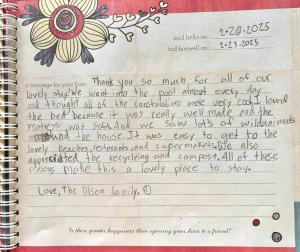 said hello on: 2-20-2025
bid farewell on: 2-23-2025
a message for your host: Thank you so much for all of our
lovely stay. We went into the pool almost every day
and thought all of the constalations were very cool. I loved
the bed because it was really well made and the
matress was soft. And we saw lots of wild animals
around the house. It was easy to get to the
lovely beaches, resterants, and supermakets. We also
appreciated the recycling and compost. All of these
reasons make this a lovely place to stay.
Love, The Olson family.
Is there greater happiness than opening your door to a friend?